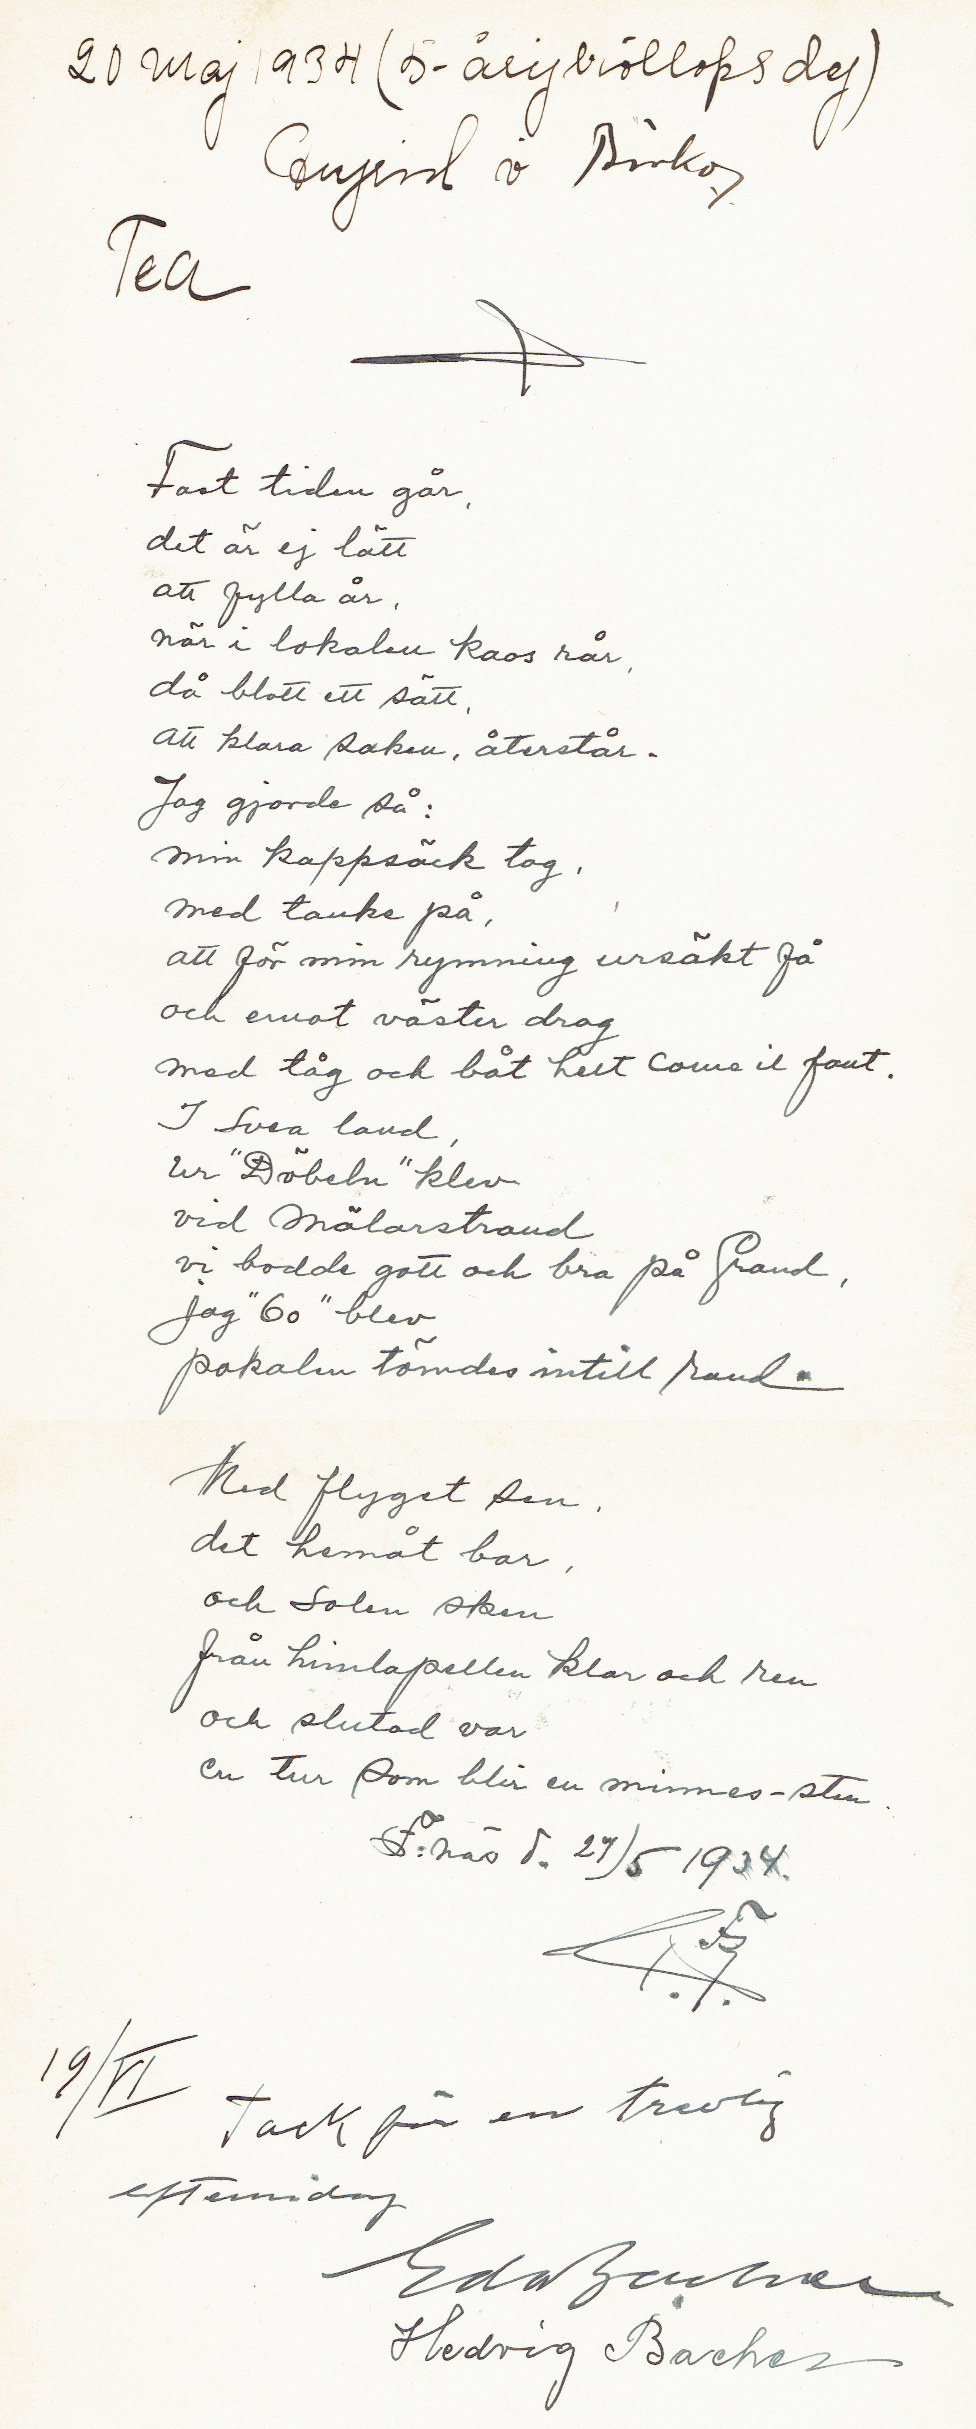 20 Maj 1934 (5-årig bröllopsdag)
Tea
Fast tiden går,
det är ej lätt
att fylla år,
när i lokalen kaos rår,
då blott ett sätt,
att klara saken, återstår.
Jag gjorde så:
min kappsäck tog,
med tanke på,
att för min rymning ursäkt få
och emot väster drog
med tåg och båt helt come il faut.
I Svea land,
ur "Döbeln" klev
vid Mälarstrand
vi bodde gott och bra på Grand,
jag "60" blev
pokalen tömdes intill rand.
Med flyget sen,
det hemåt bar,
och solen sken
från himlapellen klar och ren
och slutad var
en tur som blir en minnes-sten.
F:näs d. 27/5 1934.
19/VI
Tack för en trevlig
eftermiddag
Hedvig Bacher